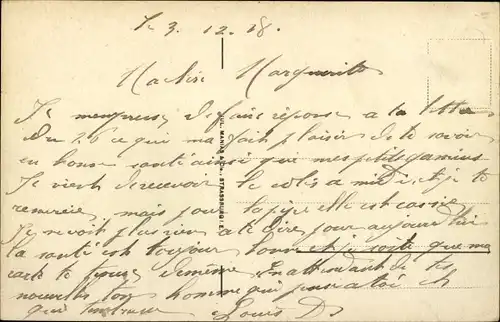 Le 3. 12. 18.
Ma chère Marguerite
Je m'empresse de faire réponse a ta lettre
du 26 ce qui ma fait plaisir de te savoir
en bonne santé ainsi que mes petits gamins
Je vient de recevoir le colis a midi et je te
remercie, mais pour la pipe elle est cassée
Je ne voit plus rien a te dire pour aujourd'hui
la santé est toujour bonne et je souète que ma
carte te trouve de même. En attendant de tes
nouvelles ton homme qui pense a toi et
qui t'embrasse Louis D
JUL. MANIAS & CIE., STRASSBURG I. E.